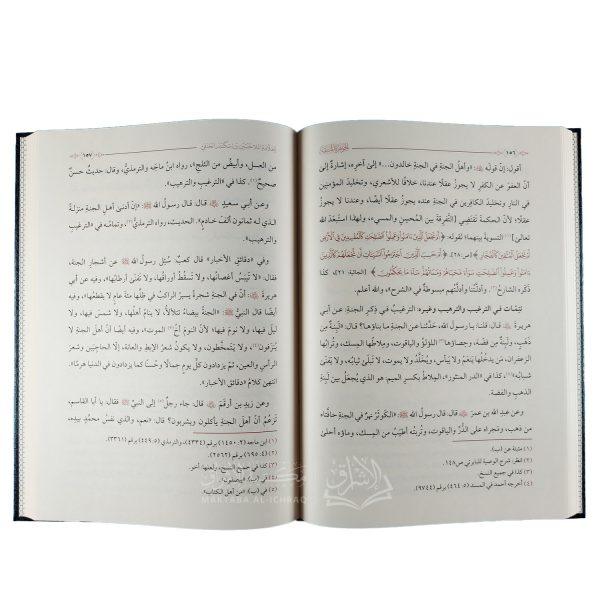 ١٥٦
أقول: إنّ قولَه ﷺ: «وأهل الجنةِ في الجنةِ خالدون...» إلىٰ آخرِه، إشارةٌ إلىٰ
أنّ العفوَ عن الكفرِ لا يجوزُ عقلًا عندنا، خلافًا للأشعري، وتخليدَ المؤمنين
في النارِ وتخليدَ الكافرين في الجنةِ عنده يجوز عقلًا أيضًا، وعندنا لا يجوز
عقلًا؛ لأنّ الحكمةَ تقتضي التفرقةَ بين المُحسِنِ والمسيء، ولهذا استبعَدَ الله
تعالىٰ التسويةَ بينهما بقوله: ﴿أَمْ نَجْعَلُ الَّذِينَ آمَنُوا وَعَمِلُوا الصَّالِحَاتِ كَالْمُفْسِدِينَ فِي الْأَرْضِ
أَمْ نَجْعَلُ الْمُتَّقِينَ كَالْفُجَّارِ﴾ [ص: ٢٨]، ﴿أَمْ حَسِبَ الَّذِينَ اجْتَرَحُوا السَّيِّئَاتِ أَنْ نَجْعَلَهُمْ
كَالَّذِينَ آمَنُوا وَعَمِلُوا الصَّالِحَاتِ سَوَاءً مَحْيَاهُمْ وَمَمَاتُهُمْ سَاءَ مَا يَحْكُمُونَ﴾ [الجاثية: ٢١]، كذا
ذكره الشارحُ(٢)، وأدلّتُنا وأدلّتُهم مبسوطةٌ في «الشرح»، والله أعلم.
تتِمّات في الترغيب والترهيب وغيرِه: الترغيب في ذكرِ الجنةِ عن أبي
هريرةَ قال: قلنا: يا رسولَ الله، حدِّثنا عن الجنةِ ما بناؤها؟ قال: «لَبِنةٌ من
ذهبٍ، ولَبِنةٌ من فضةٍ، وحصباؤها(٣) اللؤلؤُ والياقوت، ومِلاطُها المِسك، وتُرابُها
الزعفران، مَن يدخُلُها ينعَمُ ولا يبأس، ويُخلَّدُ ولا يموت، لا تَبلىٰ ثيابُه، ولا يَفنىٰ
شبابُه»(٤)، كذا في «الدر المنثور»، المِلاطُ بكسرِ الميم: هو الذي يُجعَلُ بين لَبِنةِ
الذهبِ والفضة.
وعن عبدِ الله بن عمرَ قال: قال رسولُ الله ﷺ: «الكوثرُ نهرٌ في الجنةِ حافَتاه
من ذهب، ومَجراه على الدُّرِّ والياقوت، وتُربتُه أطيَبُ من المِسك، وماؤه أحلىٰ
(١) مثبتة عن (ب).
(٢) انظر: شرح الوصية للبابرتي ص١٤٨.
(٣) كذا في جميع النسخ.
(٤) أخرجه أحمد في المسند (٤٦٤:٥) برقم (٩٧٤٤).
١٥٧
من العسل، وأبيضُ من الثلج»، رواه ابنُ ماجَه والترمذيُّ، وقال: حديثٌ حسنٌ
صحيحٌ(١)، كذا في «الترغيب والترهيب».
وعن أبي سعيدٍ قال: قال رسولُ الله ﷺ: «إنّ أدنىٰ أهلِ الجنةِ منزلةً
الذي له ثمانون ألفَ خادمٍ»، الحديث، رواه الترمذيُّ(٢)، وتمامُه في «الترغيب
والترهيب».
وفي «دقائق الأخبار» قال كعبٌ: سُئِل رسولُ الله ﷺ عن أشجارِ الجنة،
فقال: «لا تَيبَسُ أغصانُها، ولا تسقُطُ أوراقُها، ولا تَفنىٰ أرطابُها»، وفيه عن أبي
هريرةَ: أنّ في الجنةِ شجرةً يسيرُ الراكبُ في ظلِّها مئةَ عامٍ لا يقطَعُها»، وفيه
أيضًا قال النبيُّ ﷺ: «الجنةُ بيضاءُ تتلألأ، لا ينامُ أهلُها، ولا شمسَ فيها، ولا
ليلَ فيها، ولا نومَ فيها؛ لأنّ النومَ أخُ(٣) الموت»، وفيه أيضًا: إنّ أهلَ الجنةِ لا
يَبزُقون(٤)، ولا يتمخَّطون، ولا يكونُ شعرُ الإبطِ والعانة، إلا الحاجبَين وشعرَ
الرأسِ والعين، ثمّ يزدادون كلَّ يومٍ جمالًا وحُسنًا كما يزدادون في الدنيا هرمًا».
انتهىٰ كلامُ «دقائق الأخبار».
وعن زيدِ بن أرقمَ قال: جاء رجلٌ(٥) إلى النبيِّ ﷺ فقال: يا أبا القاسم،
تَزعُمُ أنّ أهلَ الجنةِ يأكلون ويشربون؟ قال: «نعم، والذي نفسُ محمّدٍ بيده،
(١) ابن ماجه (١٤٥٠:٢) برقم (٤٣٣٤)، والترمذي (٤٤٩:٥) برقم (٣٣٦١).
(٢) (٦٩٥:٤) برقم (٢٥٦٢).
(٣) كذا في جميع النسخ، ولعلها: أخو.
(٤) في (ب): «يبصقون».
(٥) في (ب): «من أهل الكتاب».
الإشراق
MAKTABA AL-ICHRAQ